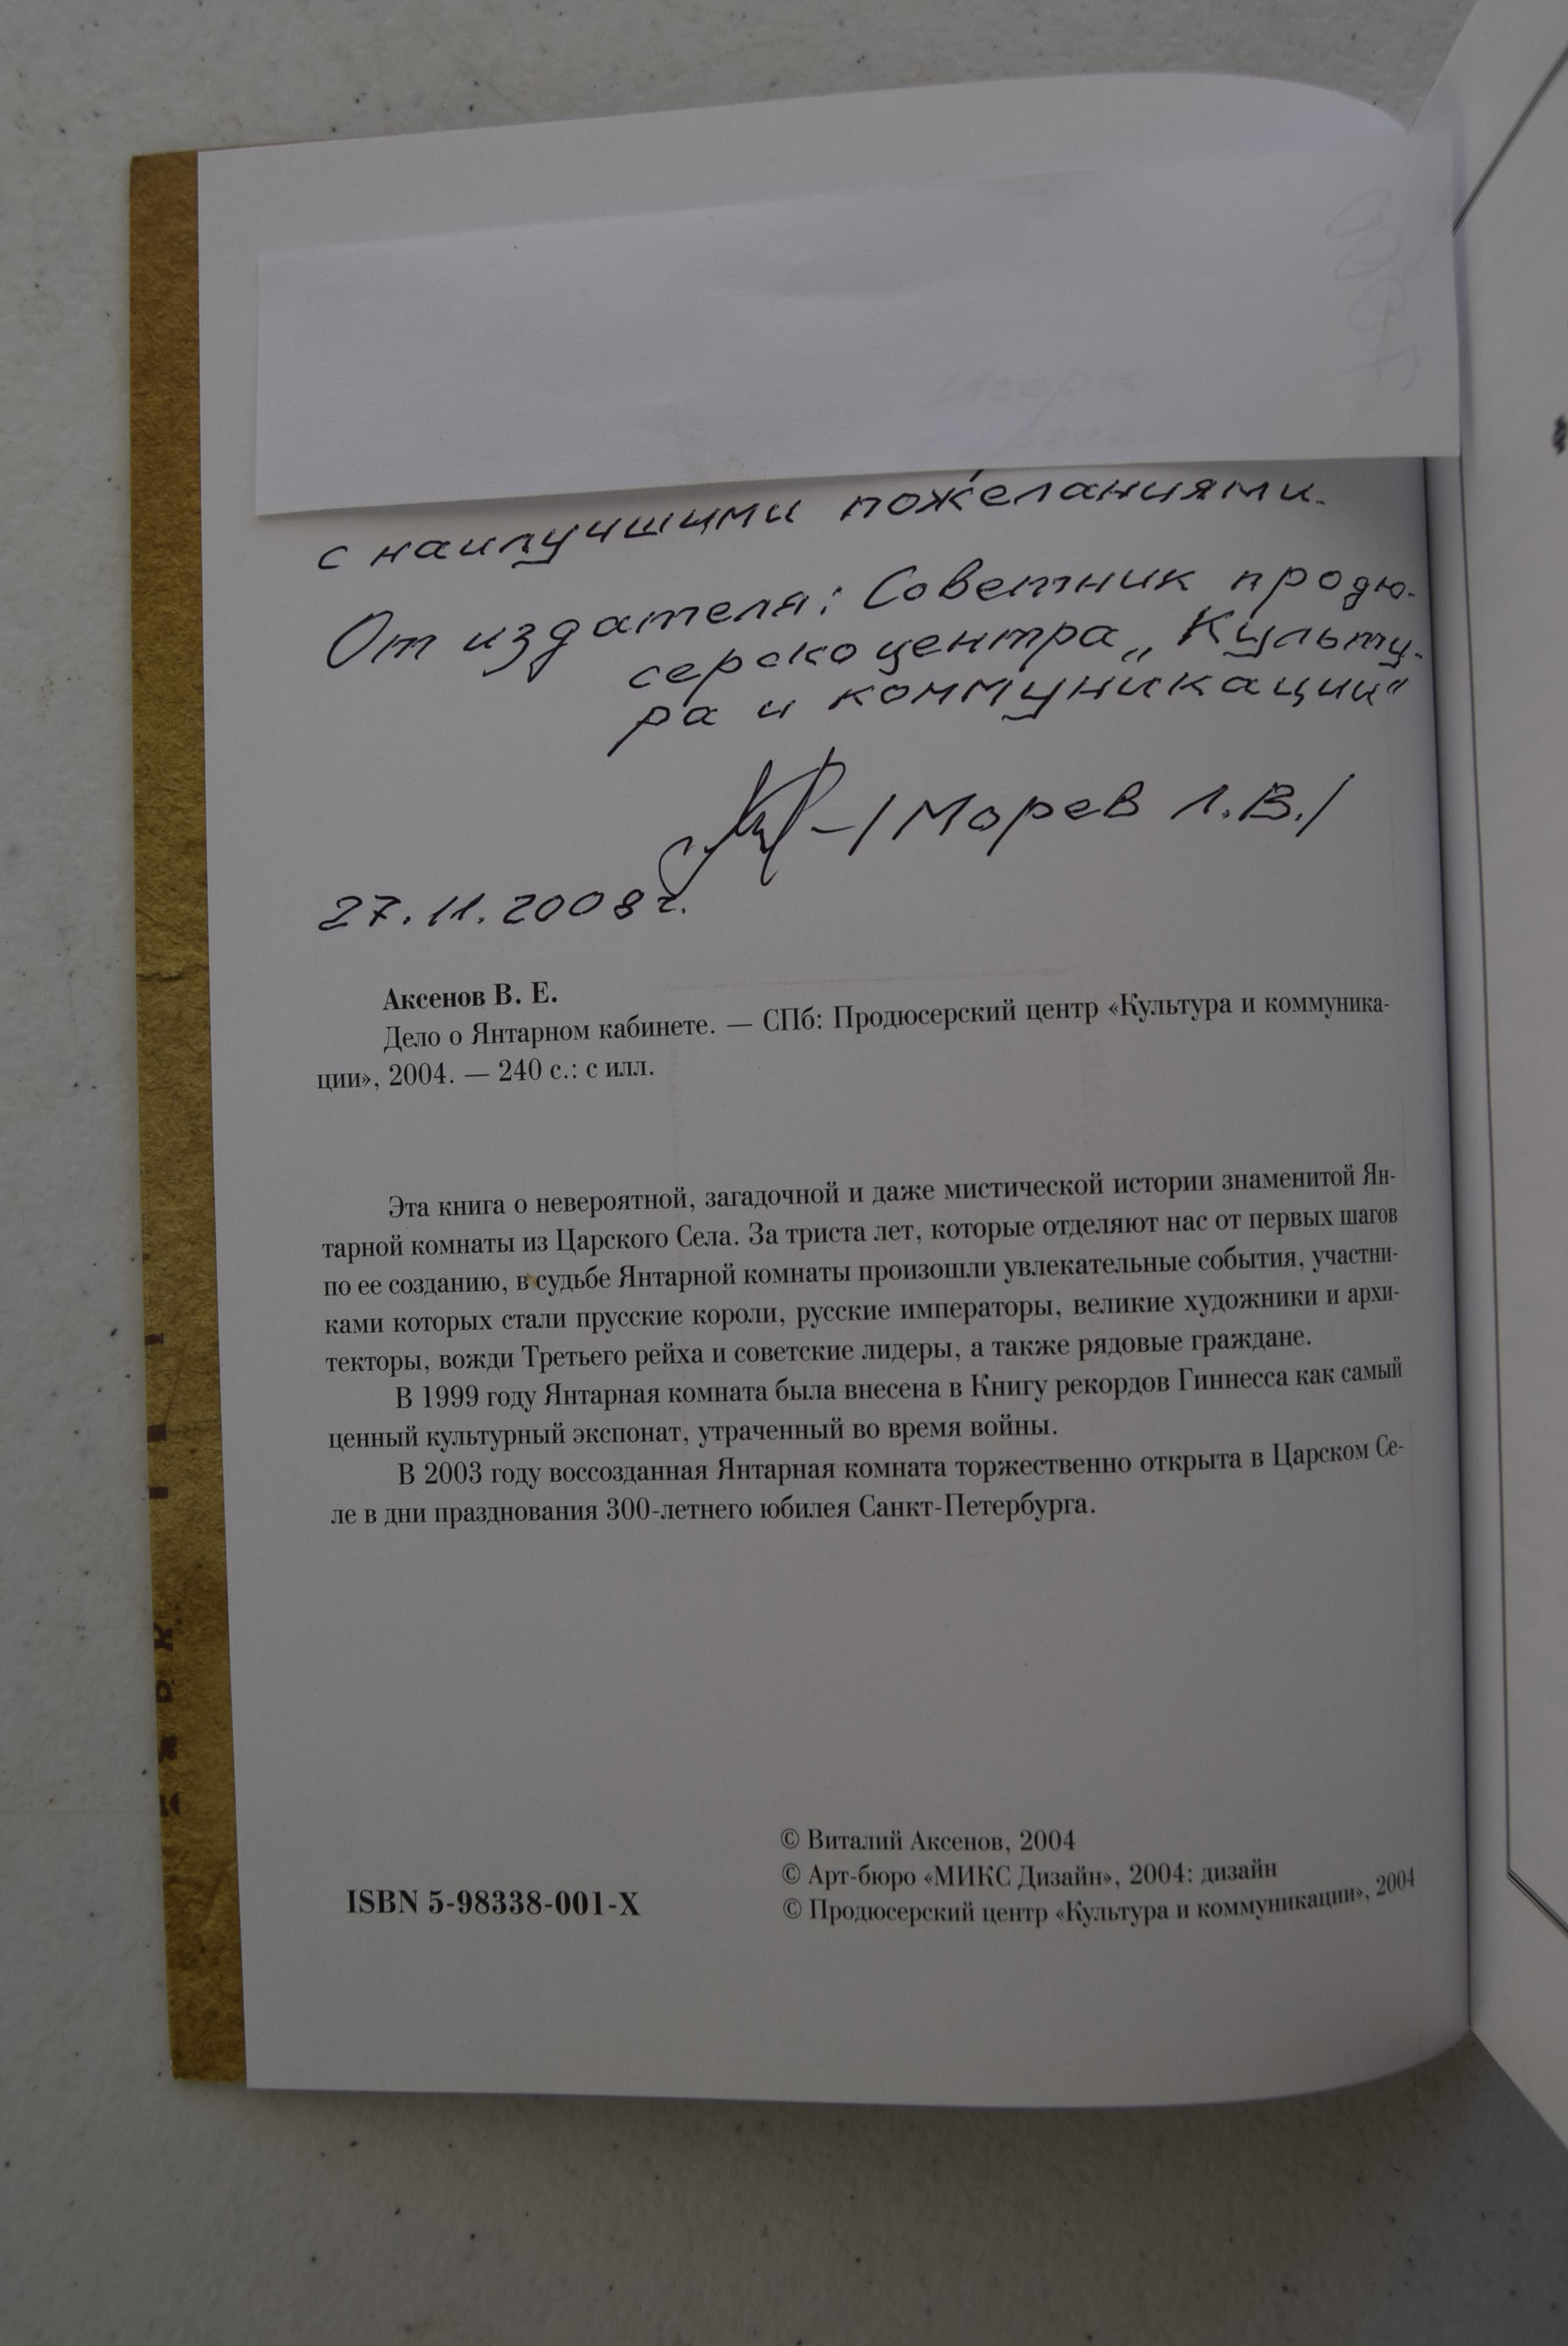 с наилучшими пожеланиями.
От издателя: Советник продю-
серско центра „Культу-
ра и коммуникации"
/Морев Л.В./
27.11.2008г.
Аксенов В. Е.
Дело о Янтарном кабинете. — СПб: Продюсерский центр «Культура и коммуника-
ции», 2004. — 240 с.: с илл.
Эта книга о невероятной, загадочной и даже мистической истории знаменитой Ян-
тарной комнаты из Царского Села. За триста лет, которые отделяют нас от первых шагов
по ее созданию, в судьбе Янтарной комнаты произошли увлекательные события, участни-
ками которых стали прусские короли, русские императоры, великие художники и архи-
текторы, вожди Третьего рейха и советские лидеры, а также рядовые граждане.
В 1999 году Янтарная комната была внесена в Книгу рекордов Гиннесса как самый
ценный культурный экспонат, утраченный во время войны.
В 2003 году воссозданная Янтарная комната торжественно открыта в Царском Се-
ле в дни празднования 300-летнего юбилея Санкт-Петербурга.
ISBN 5-98338-001-X
© Виталий Аксенов, 2004
© Арт-бюро «МИКС Дизайн», 2004: дизайн
© Продюсерский центр «Культура и коммуникации», 2004